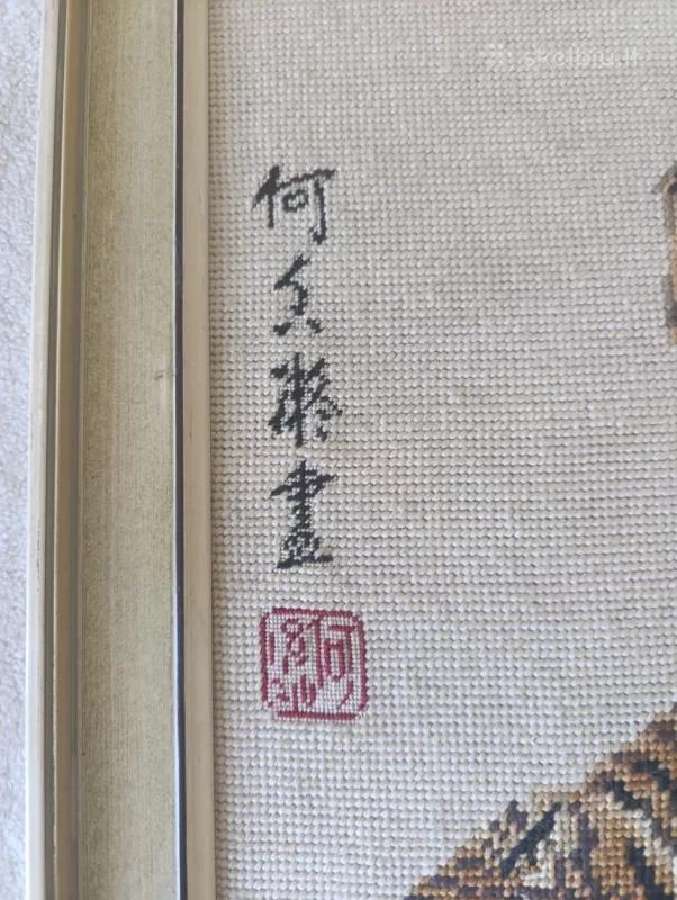 何香凝畫
skelbiu.lt